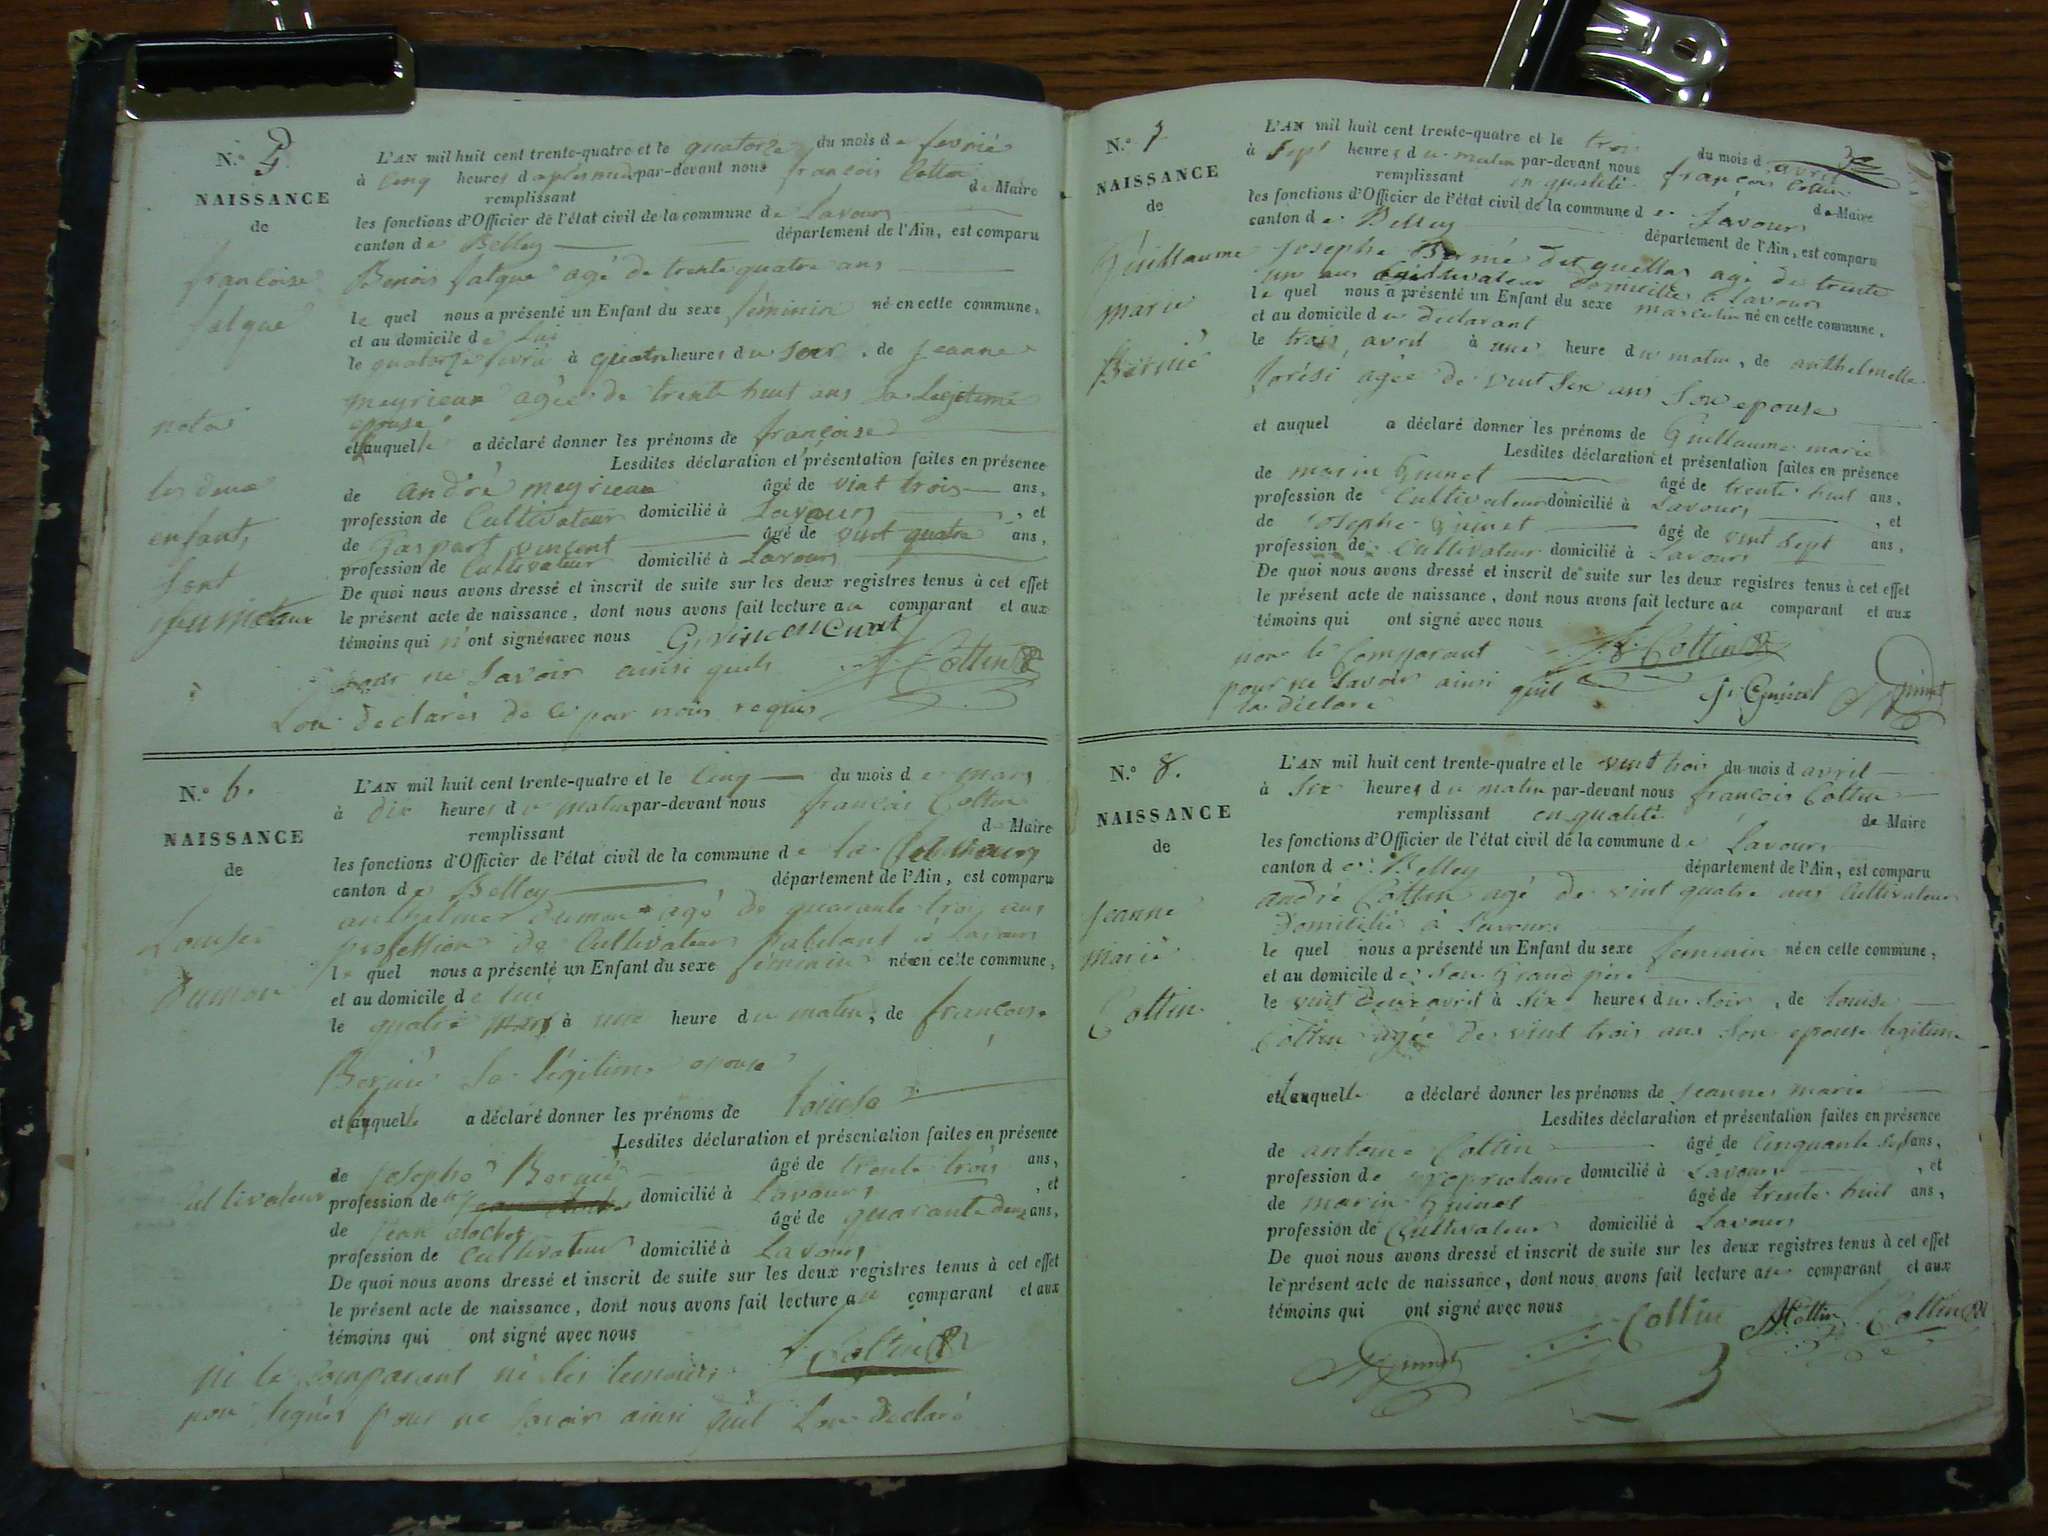 N.º 5.
NAISSANCE
de
françoise
falque
nota
les deux
enfants
sont
jumeaux
L'AN mil huit cent trente-quatre et le quatorze du mois de fevrié
à cinq heures d'après midi par-devant nous françois Cottin
remplissant de Maire
les fonctions d'Officier de l'état civil de la commune de Lavours
canton de Belley département de l'Ain, est comparu
Benois falque agé de trente quatre ans
le quel nous a présenté un Enfant du sexe féminin né en cette commune,
et au domicile de lui
le quatorze fevrié à quatre heures du soir, de jeanne
meyrieux agée de trente huit ans sa légitime
epouse
et laquelle a déclaré donner les prénoms de françoise
Lesdites déclaration et présentation faites en présence
de andré meyrieux âgé de vint trois ans,
profession de Cultivateur domicilié à Lavours, et
de Gaspart vincent âgé de vint quatre ans,
profession de Cultivateur domicilié à Lavours
De quoi nous avons dressé et inscrit de suite sur les deux registres tenus à cet effet
le présent acte de naissance, dont nous avons fait lecture au comparant et aux
témoins qui n'ont signé avec nous
pour ne savoir ainsi quils F. Cottin
Lon declarés de ce par nous requis
N.º 6.
NAISSANCE
de
Louise
Dumon
cultivateur
L'AN mil huit cent trente-quatre et le cinq du mois de mars
à dix heures du matin par-devant nous françois Cottin
remplissant de Maire
les fonctions d'Officier de l'état civil de la commune de la
canton de Belley département de l'Ain, est comparu
anthelmer Dumon agé de quarante trois ans
profession de Cultivateur habitant à Lavours
le quel nous a présenté un Enfant du sexe féminin né en cette commune,
et au domicile de lui
le quatre mars à une heure du matin, de françoise
Bernié sa légitime epouse
et laquelle a déclaré donner les prénoms de louise
Lesdites déclaration et présentation faites en présence
de josephe Bernié âgé de trente trois ans,
profession de domicilié à Lavours, et
de jean âgé de quarante deux ans,
profession de Cultivateur domicilié à Lavours
De quoi nous avons dressé et inscrit de suite sur les deux registres tenus à cet effet
le présent acte de naissance, dont nous avons fait lecture au comparant et aux
témoins qui ont signé avec nous
ni le comparant ni les temoins F. Cottin
non signés pour ne savoir ainsi quil Lon declaré
N.º 7
NAISSANCE
de
Guillaume
marie
Bernié
L'AN mil huit cent trente-quatre et le trois du mois d avril
à sept heures du matin par-devant nous françois Cottin
remplissant en qualité de Maire
les fonctions d'Officier de l'état civil de la commune de Lavours
canton de Belley département de l'Ain, est comparu
josephe Bernié dit quellas agé de trente
un ans Cultivateur domicilié à Lavours
le quel nous a présenté un Enfant du sexe masculin né en cette commune,
et au domicile du declarant
le trois avril à une heure du matin, de anthelmette
forési agée de vint six ans son epouse
et auquel a déclaré donner les prénoms de Guillaume marie
Lesdites déclaration et présentation faites en présence
de marin Guinet âgé de trente huit ans,
profession de Cultivateur domicilié à Lavours, et
de josephe Guinet âgé de vint sept ans,
profession de Cultivateur domicilié à Lavours
De quoi nous avons dressé et inscrit de suite sur les deux registres tenus à cet effet
le présent acte de naissance, dont nous avons fait lecture au comparant et aux
témoins qui ont signé avec nous
non le comparant F. Cottin
pour ne savoir ainsi quil J. Guinet M Guinet
la déclaré
N.º 8.
NAISSANCE
de
jeanne
marie
Cottin
L'AN mil huit cent trente-quatre et le vint trois du mois d avril
à six heures du matin par-devant nous françois Cottin
remplissant en qualité de Maire
les fonctions d'Officier de l'état civil de la commune de Lavours
canton de Belley département de l'Ain, est comparu
andré Cottin agé de vint quatre ans Cultivateur
Domicilié à Lavours
le quel nous a présenté un Enfant du sexe feminin né en cette commune,
et au domicile de son grand père
le vint deux avril à six heures du soir, de louise
Cottin agée de vint trois ans son epouse legitime
et laquelle a déclaré donner les prénoms de jeanne marie
Lesdites déclaration et présentation faites en présence
de antoine Cottin âgé de cinquante sept ans,
profession de proprietaire domicilié à Lavours, et
de marin Guinet âgé de trente huit ans,
profession de Cultivateur domicilié à Lavours
De quoi nous avons dressé et inscrit de suite sur les deux registres tenus à cet effet
le présent acte de naissance, dont nous avons fait lecture au comparant et aux
témoins qui ont signé avec nous Cottin A Cottin F. Cottin
M Guinet